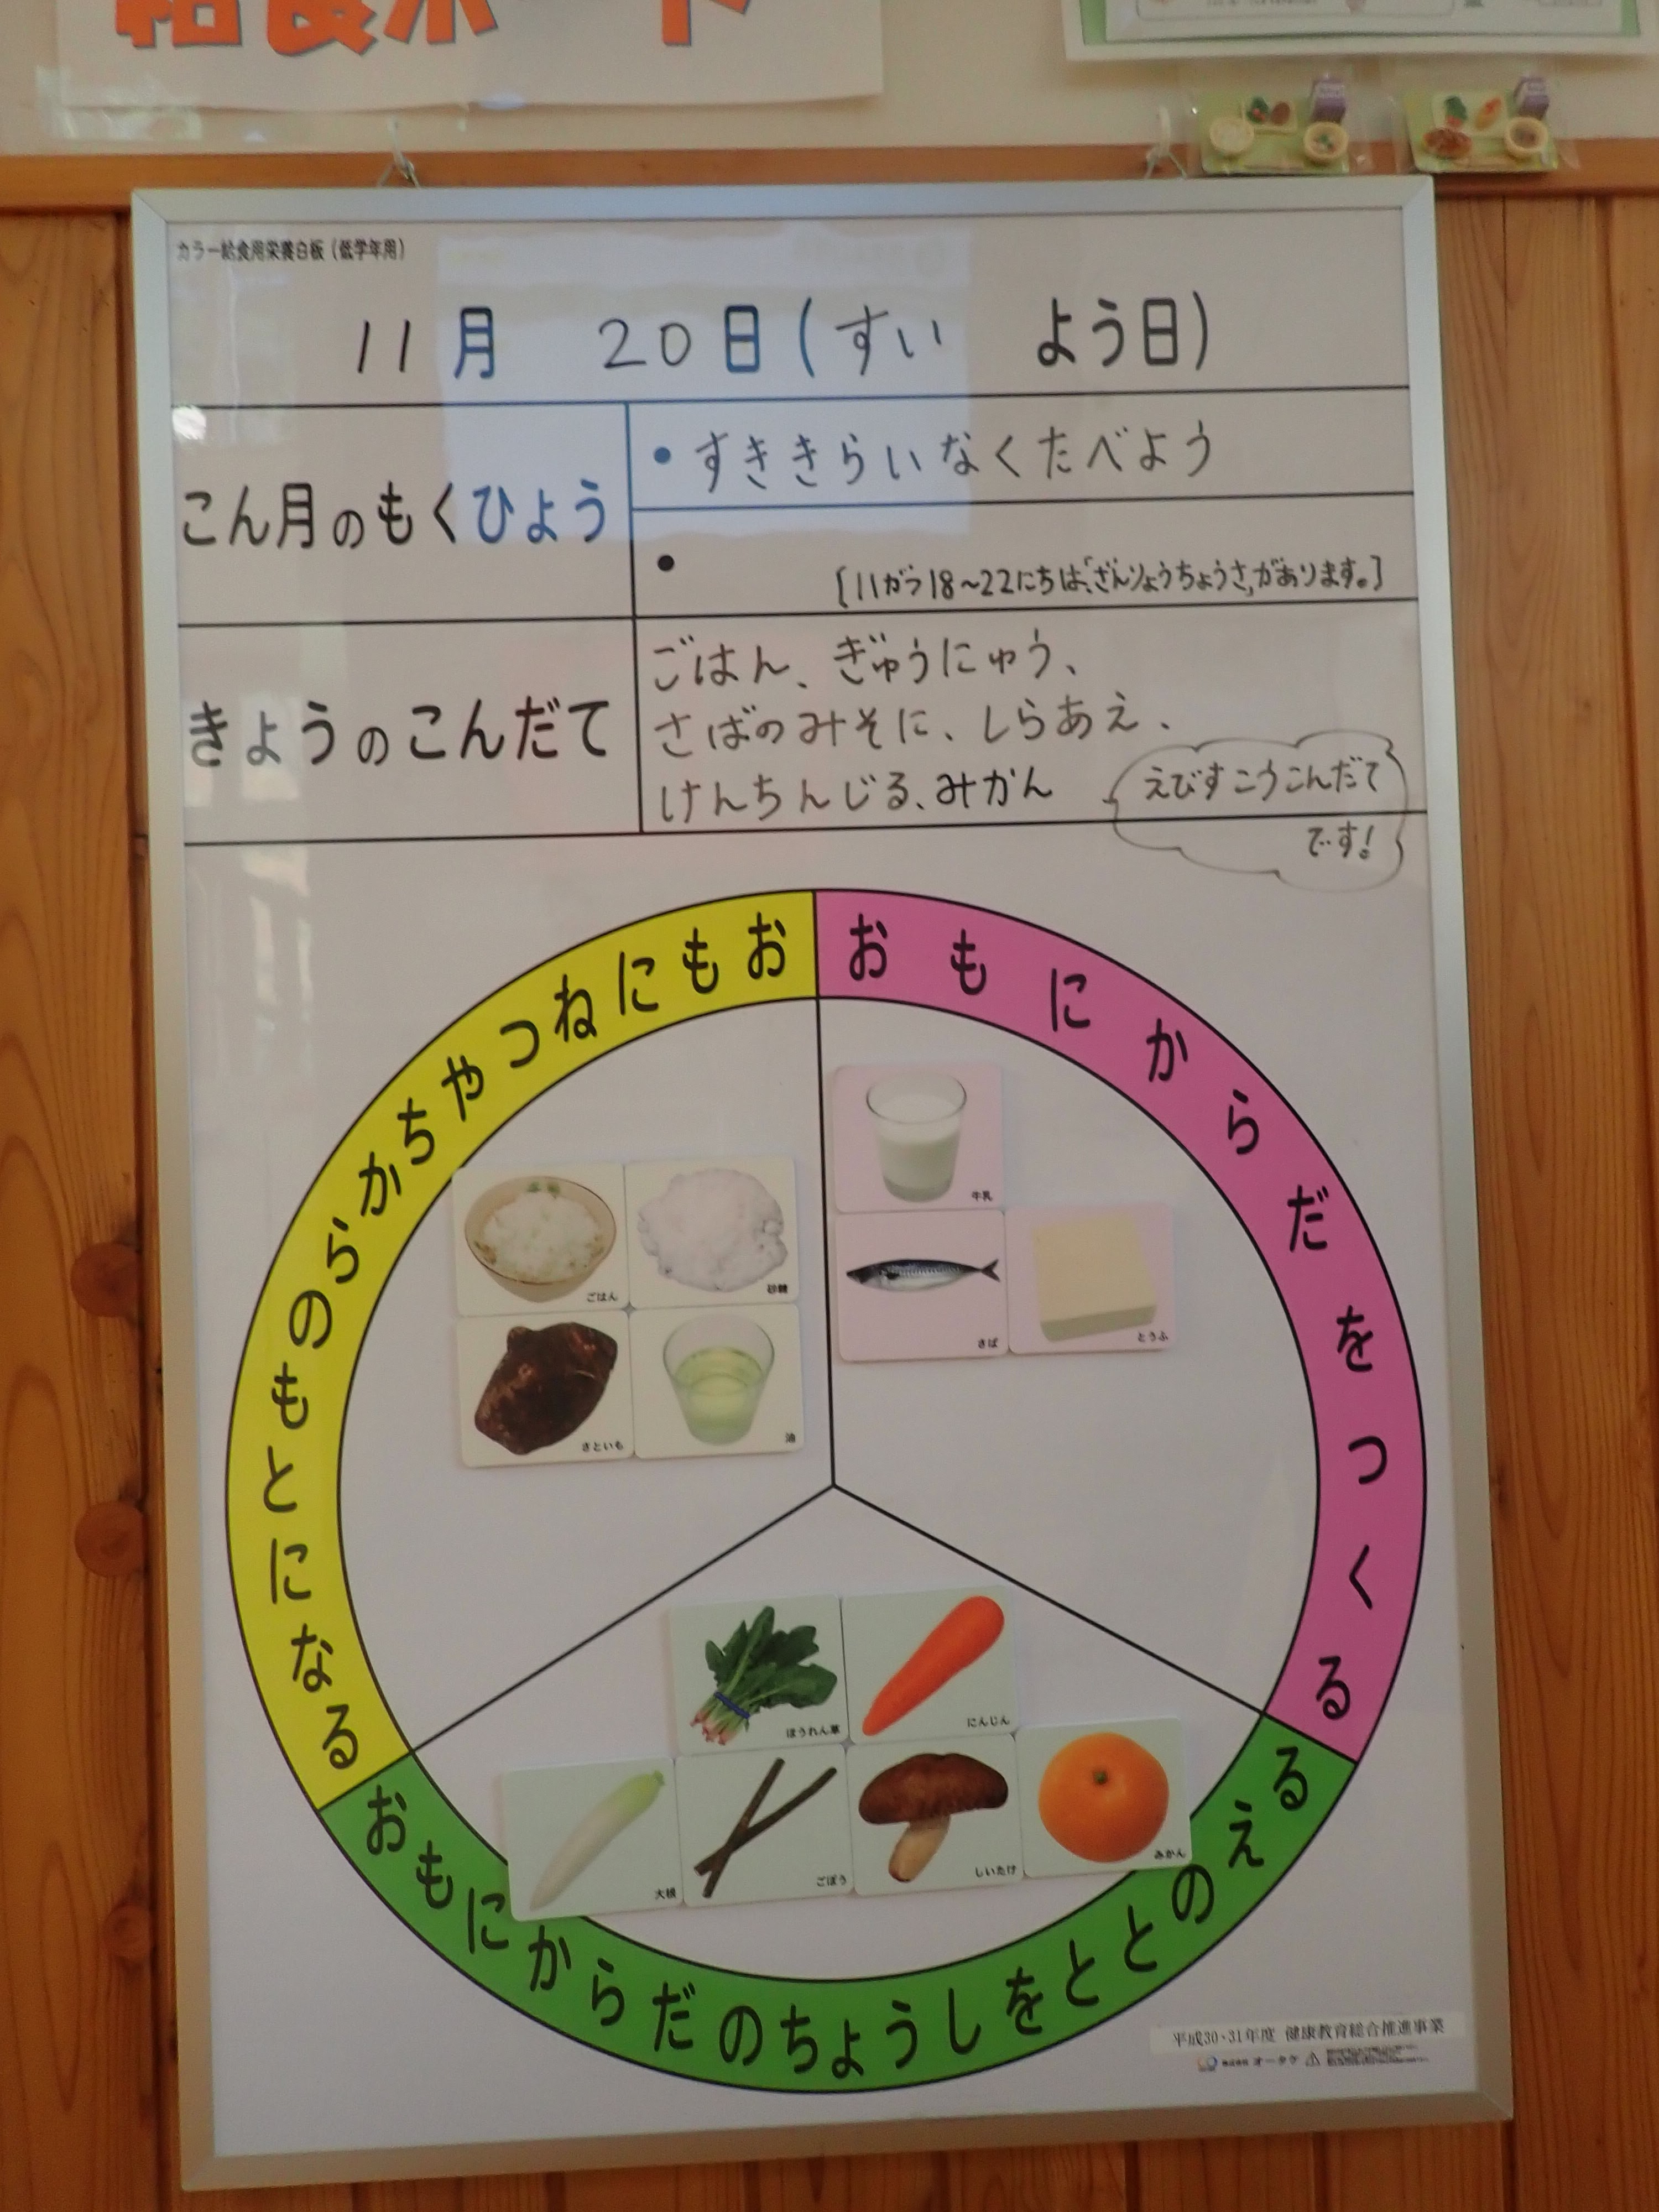 給食ボード
カラー給食用栄養白板(低学年用)
11月 20日(すい よう日)
こん月のもくひょう
•すききらいなくたべよう
•
[11がつ18~22にちは、「ざんりょうちょうさ」があります。]
きょうのこんだて
ごはん、ぎゅうにゅう、
さばのみそに、しらあえ、
けんちんじる、みかん
えびすこうこんだて
です!
おもにねつやちからのもとになる
おもにからだをつくる
牛乳
ごはん
砂糖
さば
とうふ
さといも
油
ほうれん草
にんじん
大根
ごぼう
しいたけ
みかん
おもにからだのちょうしをととのえる
平成30・31年度 健康教育総合推進事業
株式会社オータケ